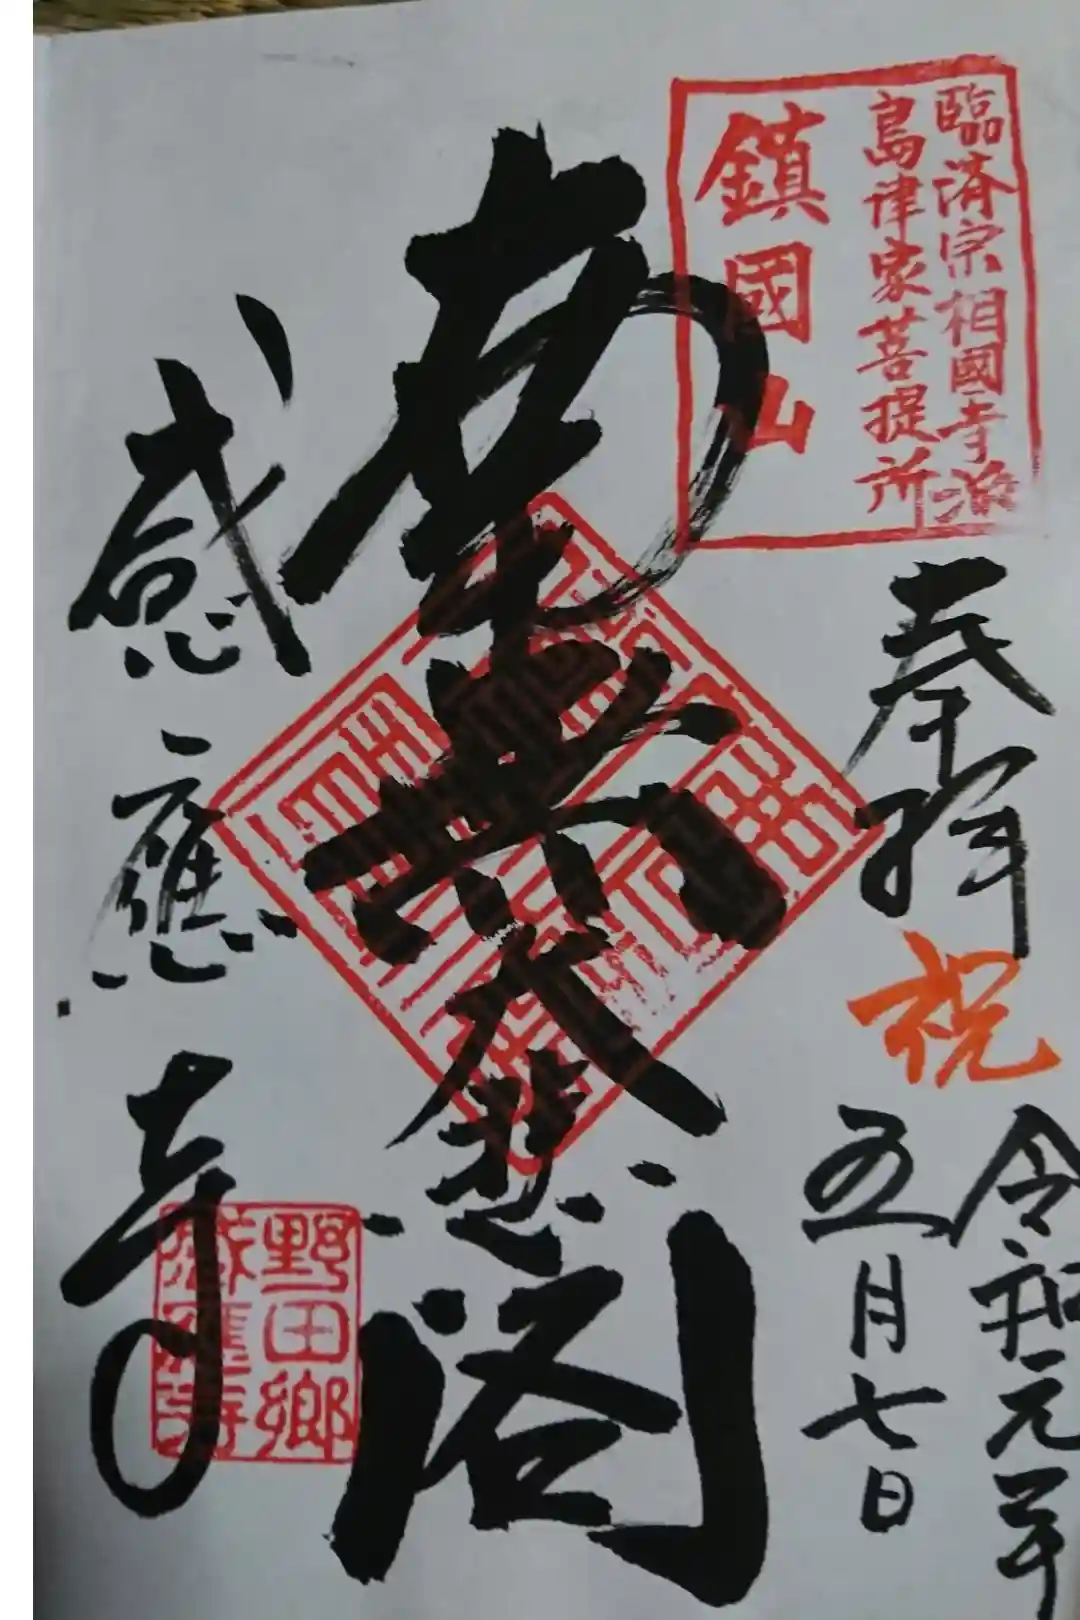 臨済宗相國寺派
島津家菩提所
鎮國山
奉拝
祝
令和元年
五月七日
南無大悲閣
感應寺
野田郷
感應寺